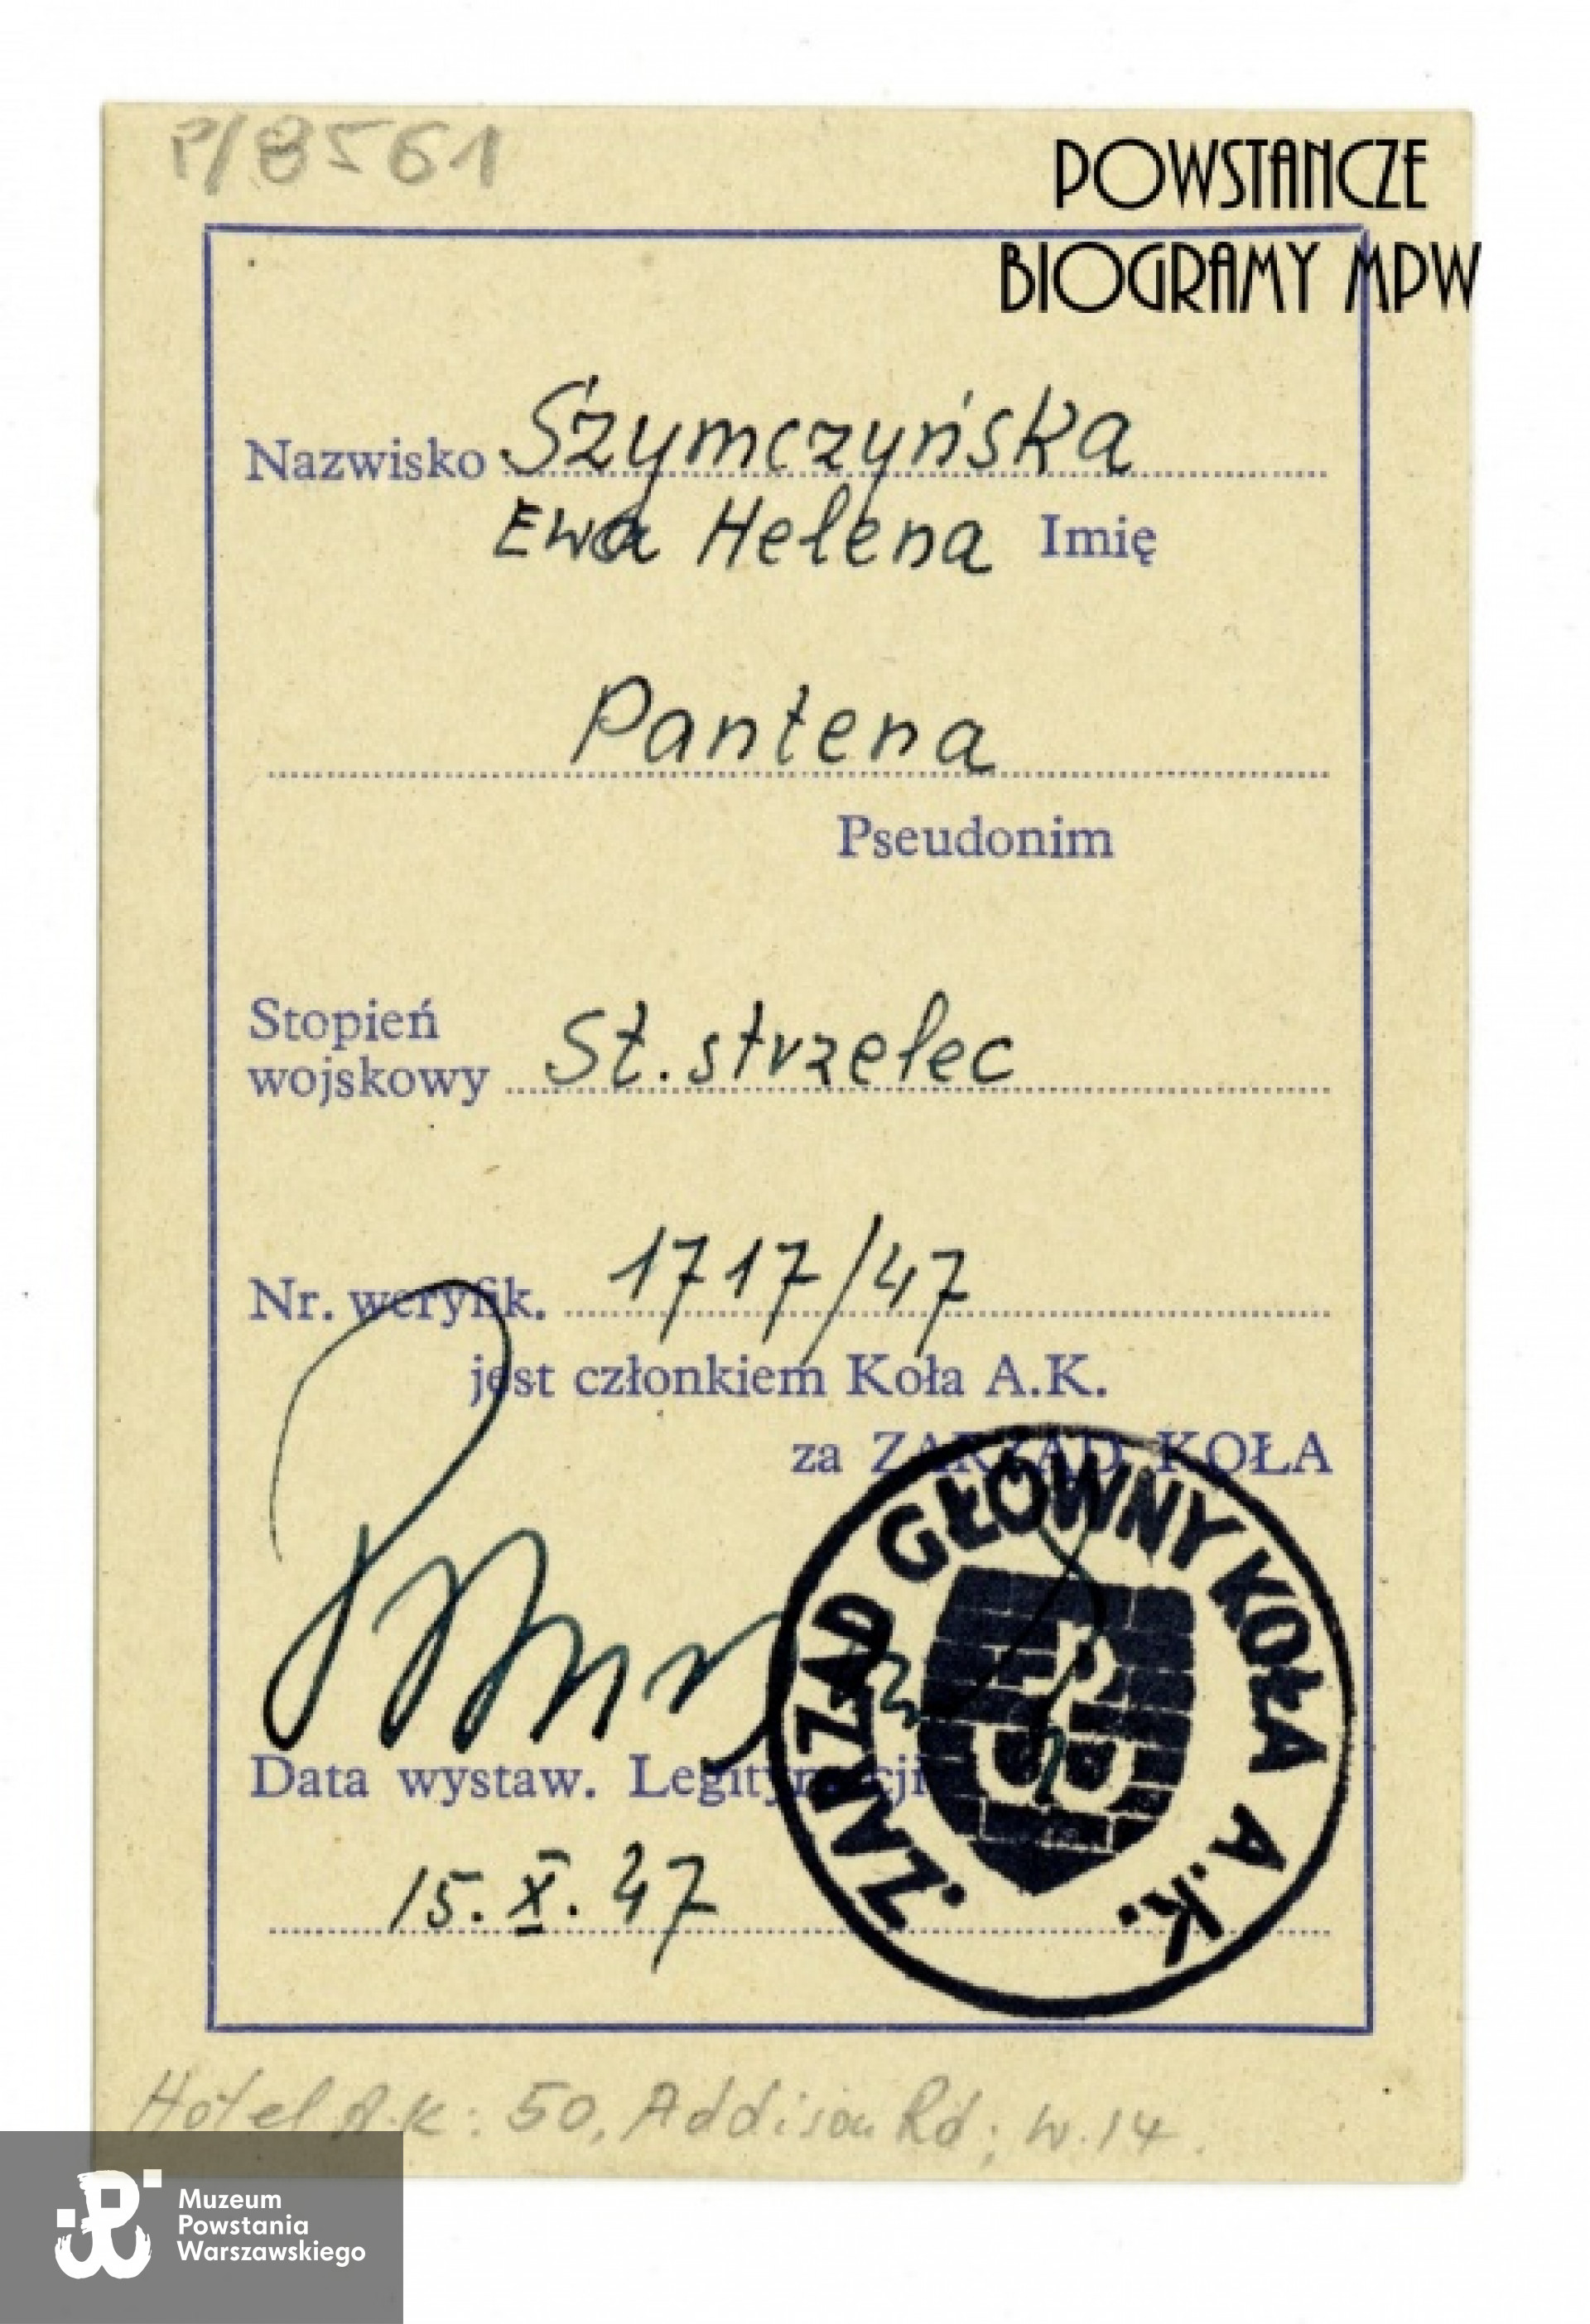 P/8561
POWSTAŃCZE
BIOGRAMY MPW
Nazwisko Szymczyńska
Ewa Helena Imię
Pantena
Pseudonim
Stopień
wojskowy St. strzelec
Nr. weryfik. 1717/47
jest członkiem Koła A.K.
za ZARZĄD KOŁA
ZARZĄD GŁÓWNY KOŁA A.K.
Data wystaw. Legitymacji
15.X.47
Hotel A.K: 50, Addison Rd; W.14.
Muzeum
Powstania
Warszawskiego